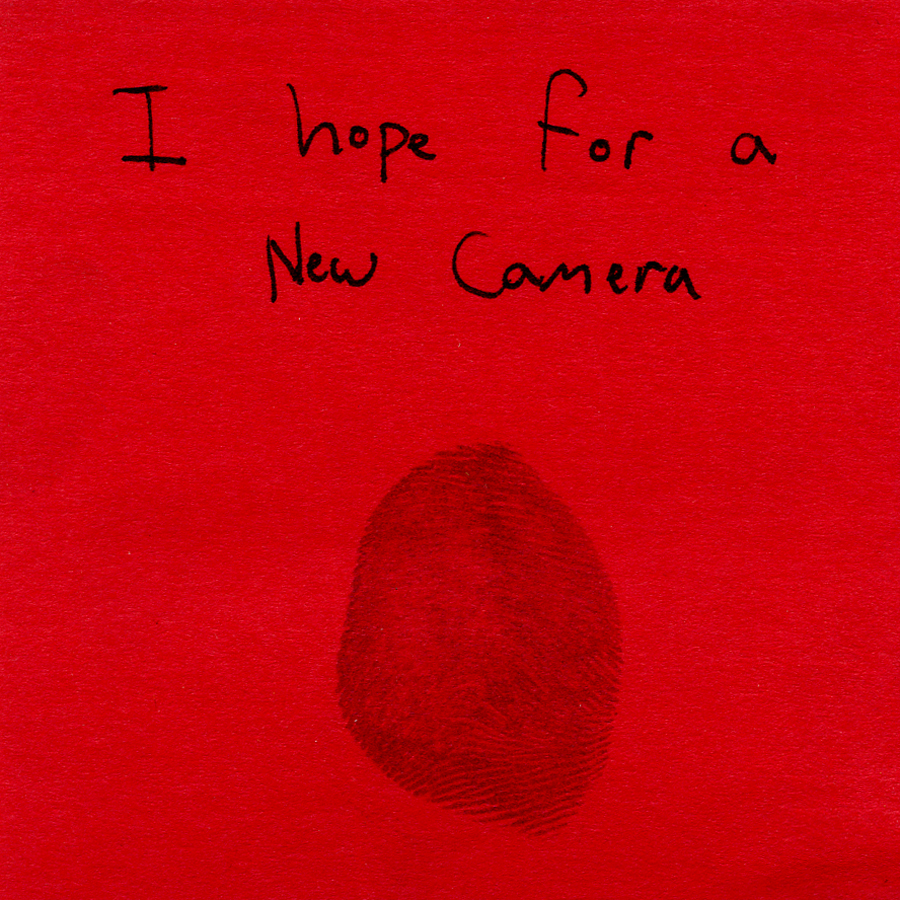 I hope for a
New Camera